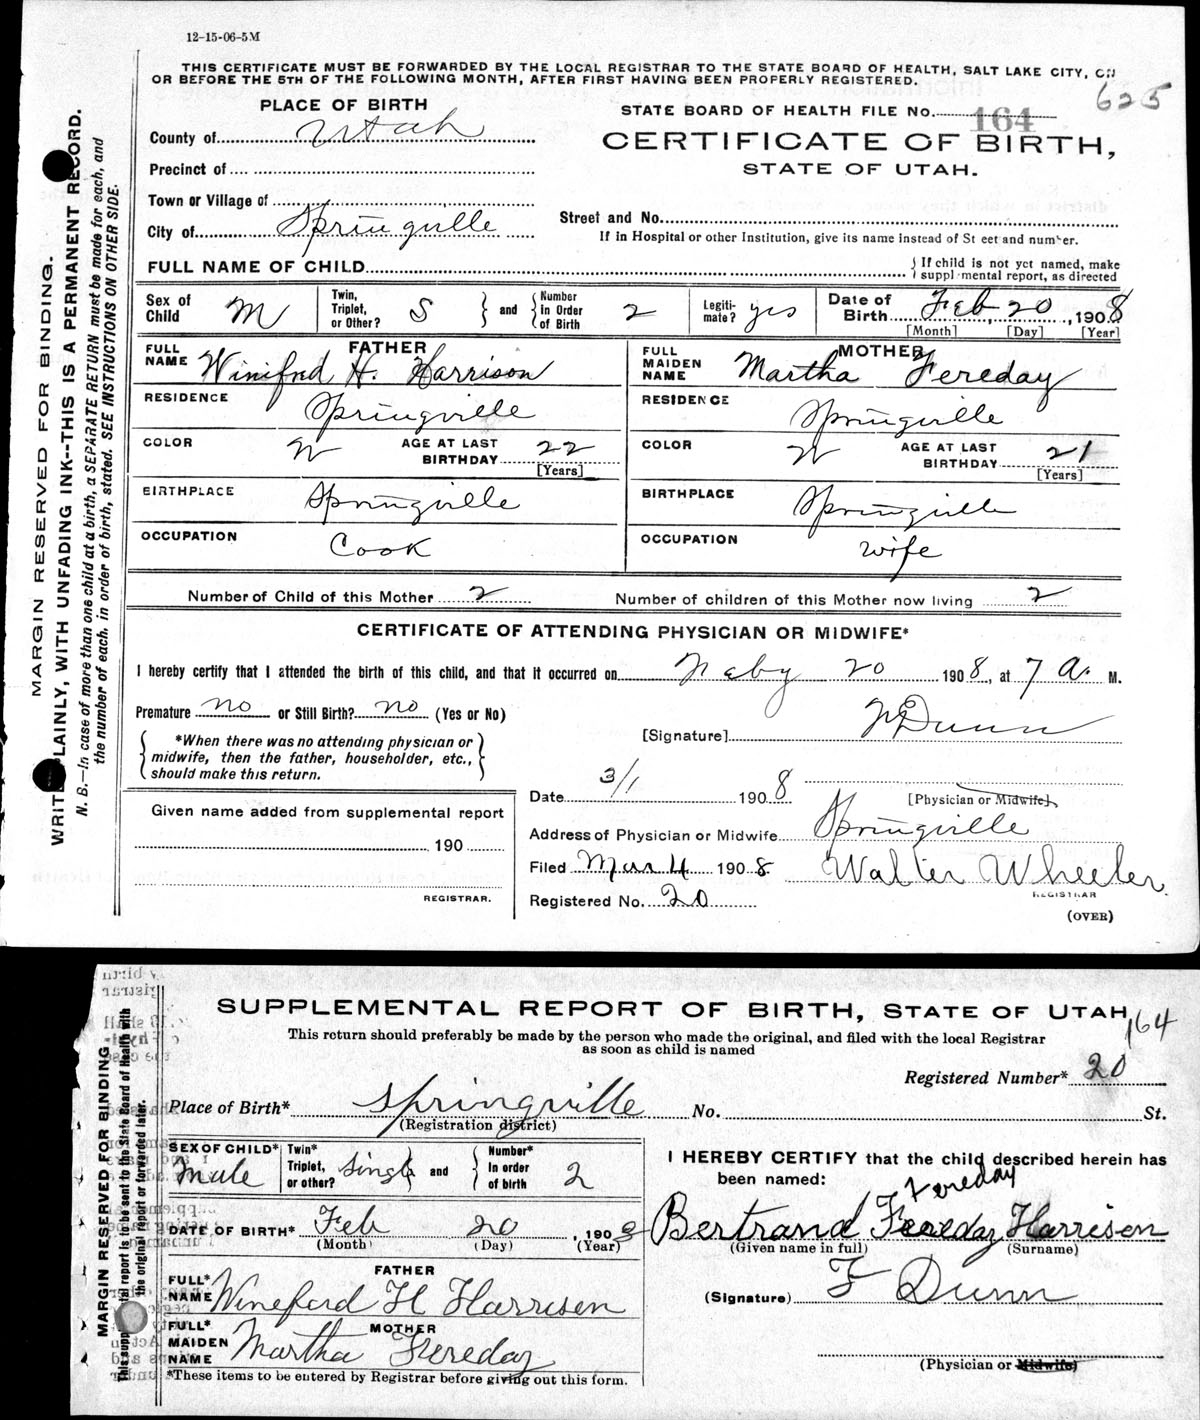 12-15-06-5M
THIS CERTIFICATE MUST BE FORWARDED BY THE LOCAL REGISTRAR TO THE STATE BOARD OF HEALTH, SALT LAKE CITY, ON
OR BEFORE THE 5TH OF THE FOLLOWING MONTH, AFTER FIRST HAVING BEEN PROPERLY REGISTERED.
625
PLACE OF BIRTH
STATE BOARD OF HEALTH FILE No. 164
County of Utah
CERTIFICATE OF BIRTH,
STATE OF UTAH.
Precinct of
Town or Village of
City of Springville
Street and No.
If in Hospital or other Institution, give its name instead of St eet and number.
FULL NAME OF CHILD
{ If child is not yet named, make
supplemental report, as directed
Sex of Child M
Twin, Triplet, or Other? S } and { Number in Order of Birth 2
Legitimate? yes
Date of Birth Feb, 20, 1908
[Month] [Day] [Year]
FATHER
FULL NAME Winifred H. Harrison
RESIDENCE Springville
COLOR W AGE AT LAST BIRTHDAY 22
[Years]
BIRTHPLACE Springville
OCCUPATION Cook
MOTHER
FULL MAIDEN NAME Martha Fereday
RESIDENCE Springville
COLOR W AGE AT LAST BIRTHDAY 21
[Years]
BIRTHPLACE Springville
OCCUPATION wife
Number of Child of this Mother 2 Number of children of this Mother now living 2
CERTIFICATE OF ATTENDING PHYSICIAN OR MIDWIFE*
I hereby certify that I attended the birth of this child, and that it occurred on Feby 20 1908, at 7 A. M.
Premature no or Still Birth? no (Yes or No)
[Signature] F Dunn
{ *When there was no attending physician or
midwife, then the father, householder, etc.,
should make this return. }
Date 3/1 1908
[Physician or Midwife]
Given name added from supplemental report
190
REGISTRAR.
Address of Physician or Midwife Springville
Filed Mar 4 1908 Walter Wheeler
REGISTRAR
Registered No. 20
(OVER)
MARGIN RESERVED FOR BINDING.
WRITE PLAINLY, WITH UNFADING INK--THIS IS A PERMANENT RECORD.
N. B.—In case of more than one child at a birth, a SEPARATE RETURN must be made for each, and
the number of each, in order of birth, stated. SEE INSTRUCTIONS ON OTHER SIDE.
SUPPLEMENTAL REPORT OF BIRTH, STATE OF UTAH
164
This return should preferably be made by the person who made the original, and filed with the local Registrar
as soon as child is named
Registered Number* 20
Place of Birth* Springville No. St.
(Registration district)
SEX OF CHILD* Male
Twin* Triplet, or other? Single and { Number* In order of birth 2
DATE OF BIRTH* Feb 20, 1908
(Month) (Day) (Year)
FATHER
FULL* NAME Wineferd H Harrisen
MOTHER
FULL* MAIDEN NAME Martha Fereday
*These items to be entered by Registrar before giving out this form.
I HEREBY CERTIFY that the child described herein has
been named:
Fereday
Bertrand Fereday Harrisen
(Given name in full) (Surname)
(Signature) F Dunn
(Physician or Midwife)
MARGIN RESERVED FOR BINDING
This supplemental report is to be sent to the State Board of Health with
the original report or forwarded later.